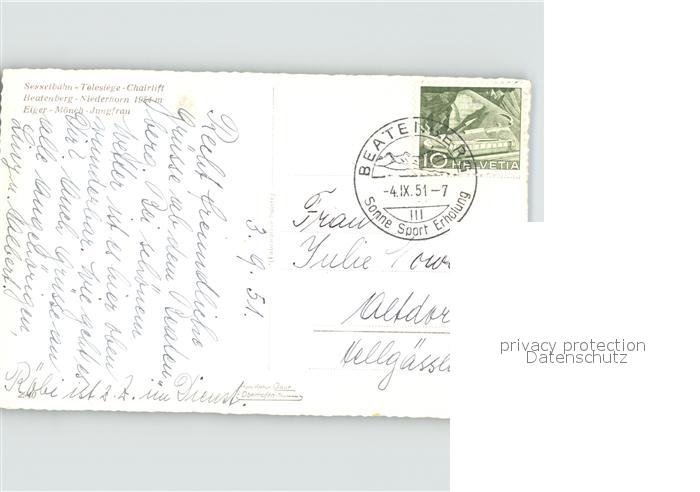 Sesselbahn - Télésiège - Chairlift
Beatenberg - Niederhorn 1954 m
Eiger - Mönch - Jungfrau
3. 9. 51.
Recht freundliche
Grüsse ab dem Beaten
berg. Bei schönem
Wetter ist es hier oben
wunderbar. Wie geht es
Dir? Auch Grüsse an
alle Angehörigen,
Röbi ist z. Z. im Dienst.
BEATENBERG
-4.IX.51-7
III
Sonne Sport Erholung
10 HELVETIA
Frau
Julie
Altdor
Hellgässl
privacy protection
Datenschutz